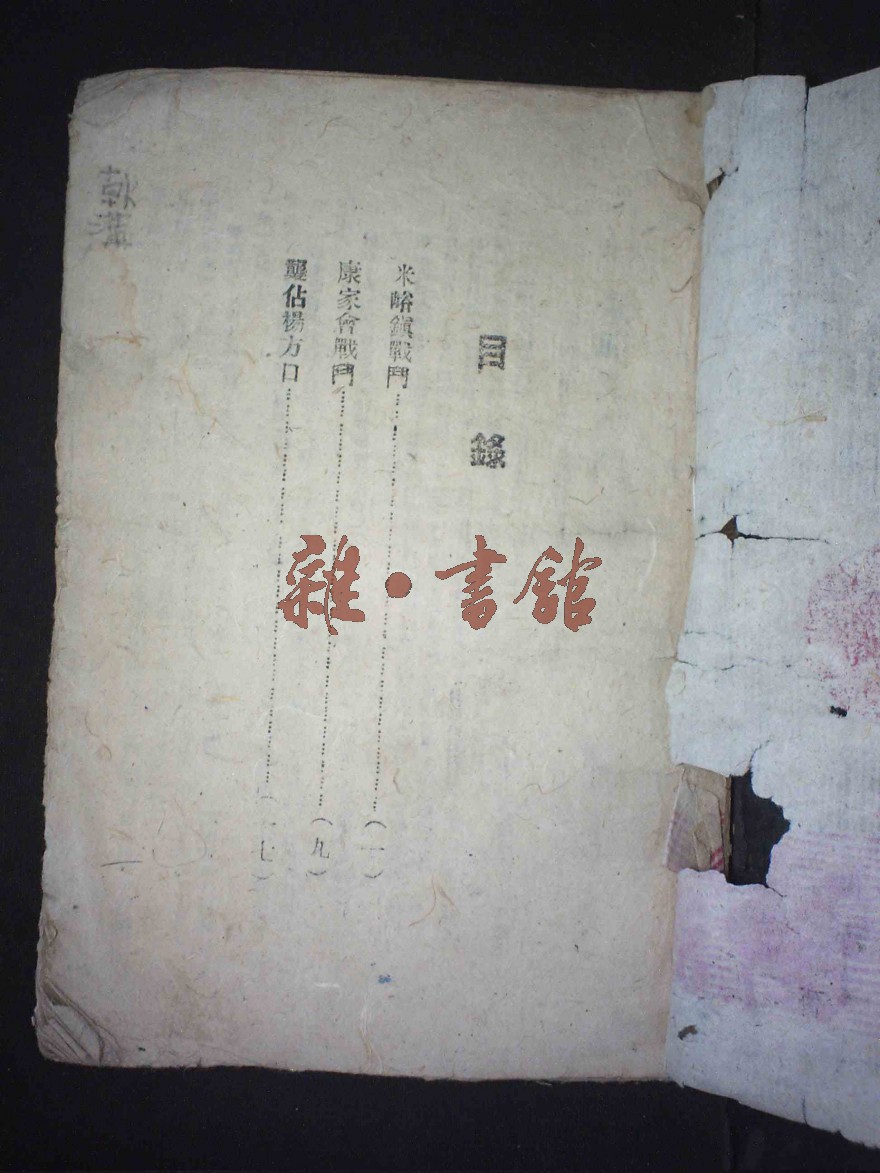 目錄
米峪鎮戰鬥……(一)
康家會戰鬥……(九)
襲佔楊方口……(一七)
雜·書館